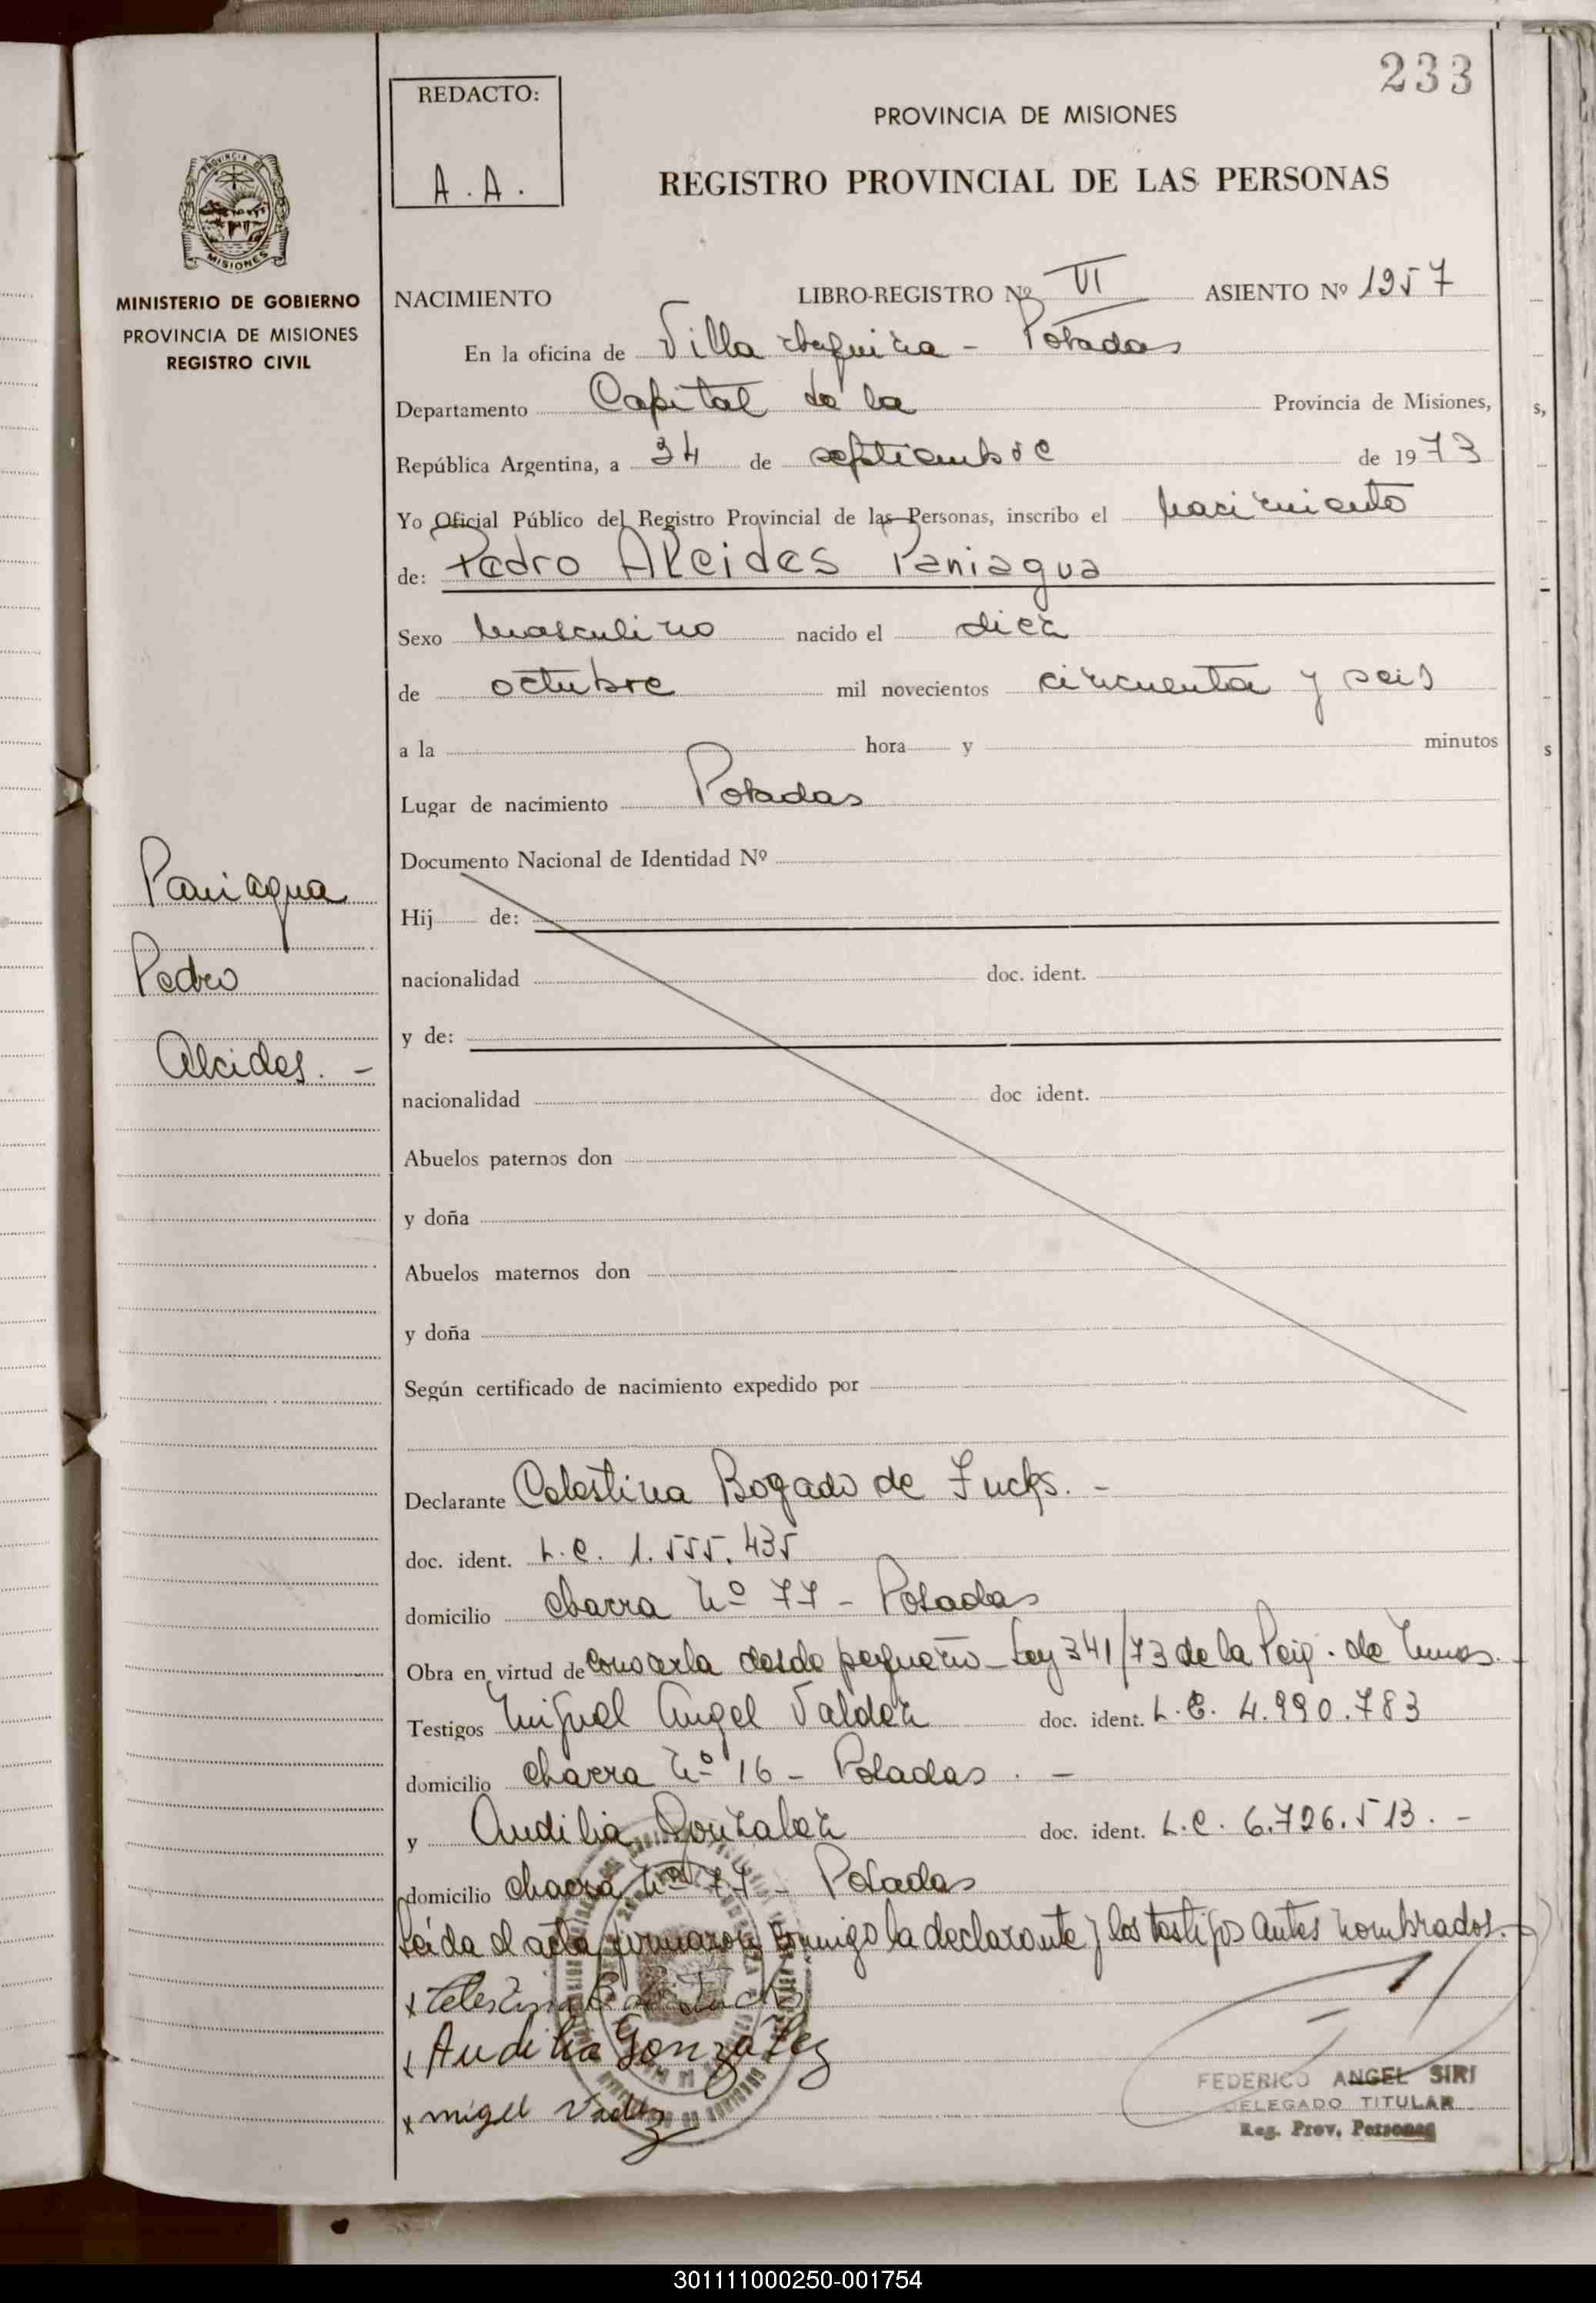 233
REDACTO:
A. A.
PROVINCIA DE MISIONES
REGISTRO PROVINCIAL DE LAS PERSONAS
PROVINCIA DE
MISIONES
MINISTERIO DE GOBIERNO
PROVINCIA DE MISIONES
REGISTRO CIVIL
NACIMIENTO LIBRO-REGISTRO Nº VI ASIENTO Nº 1957
En la oficina de Villa - Posadas
Departamento Capital de la Provincia de Misiones,
República Argentina, a 24 de septiembre de 1973
Yo Oficial Público del Registro Provincial de las Personas, inscribo el nacimiento
de: Pedro Alcides Paniagua
Sexo masculino nacido el diez
de octubre mil novecientos cincuenta y seis
a la hora y minutos
Lugar de nacimiento Posadas
Documento Nacional de Identidad Nº
Hij de:
nacionalidad doc. ident.
y de:
nacionalidad doc ident.
Abuelos paternos don
y doña
Abuelos maternos don
y doña
Según certificado de nacimiento expedido por
Paniagua
Pedro
Alcides. -
Declarante Celestina Bogado de Fucks. -
doc. ident. L.C. 1.555.435
domicilio chacra Nº 77 - Posadas
Obra en virtud de conocerla desde pequeño - Ley 341/73 de la
Testigos Miguel Angel Valdez doc. ident. L.E. 4.990.783
domicilio chacra Nº 16 - Posadas. -
y Audilia Gonzalez doc. ident. L.C. 6.726.513. -
domicilio chacra Nº 77 - Posadas
Leída el acta firmaron conmigo la declarante y los testigos antes nombrados. -
x Celestina B de Fucks
x Audilia Gonzalez
x migel
FEDERICO ANGEL SIRI
DELEGADO TITULAR
Reg. Prov. Personas
301111000250-001754